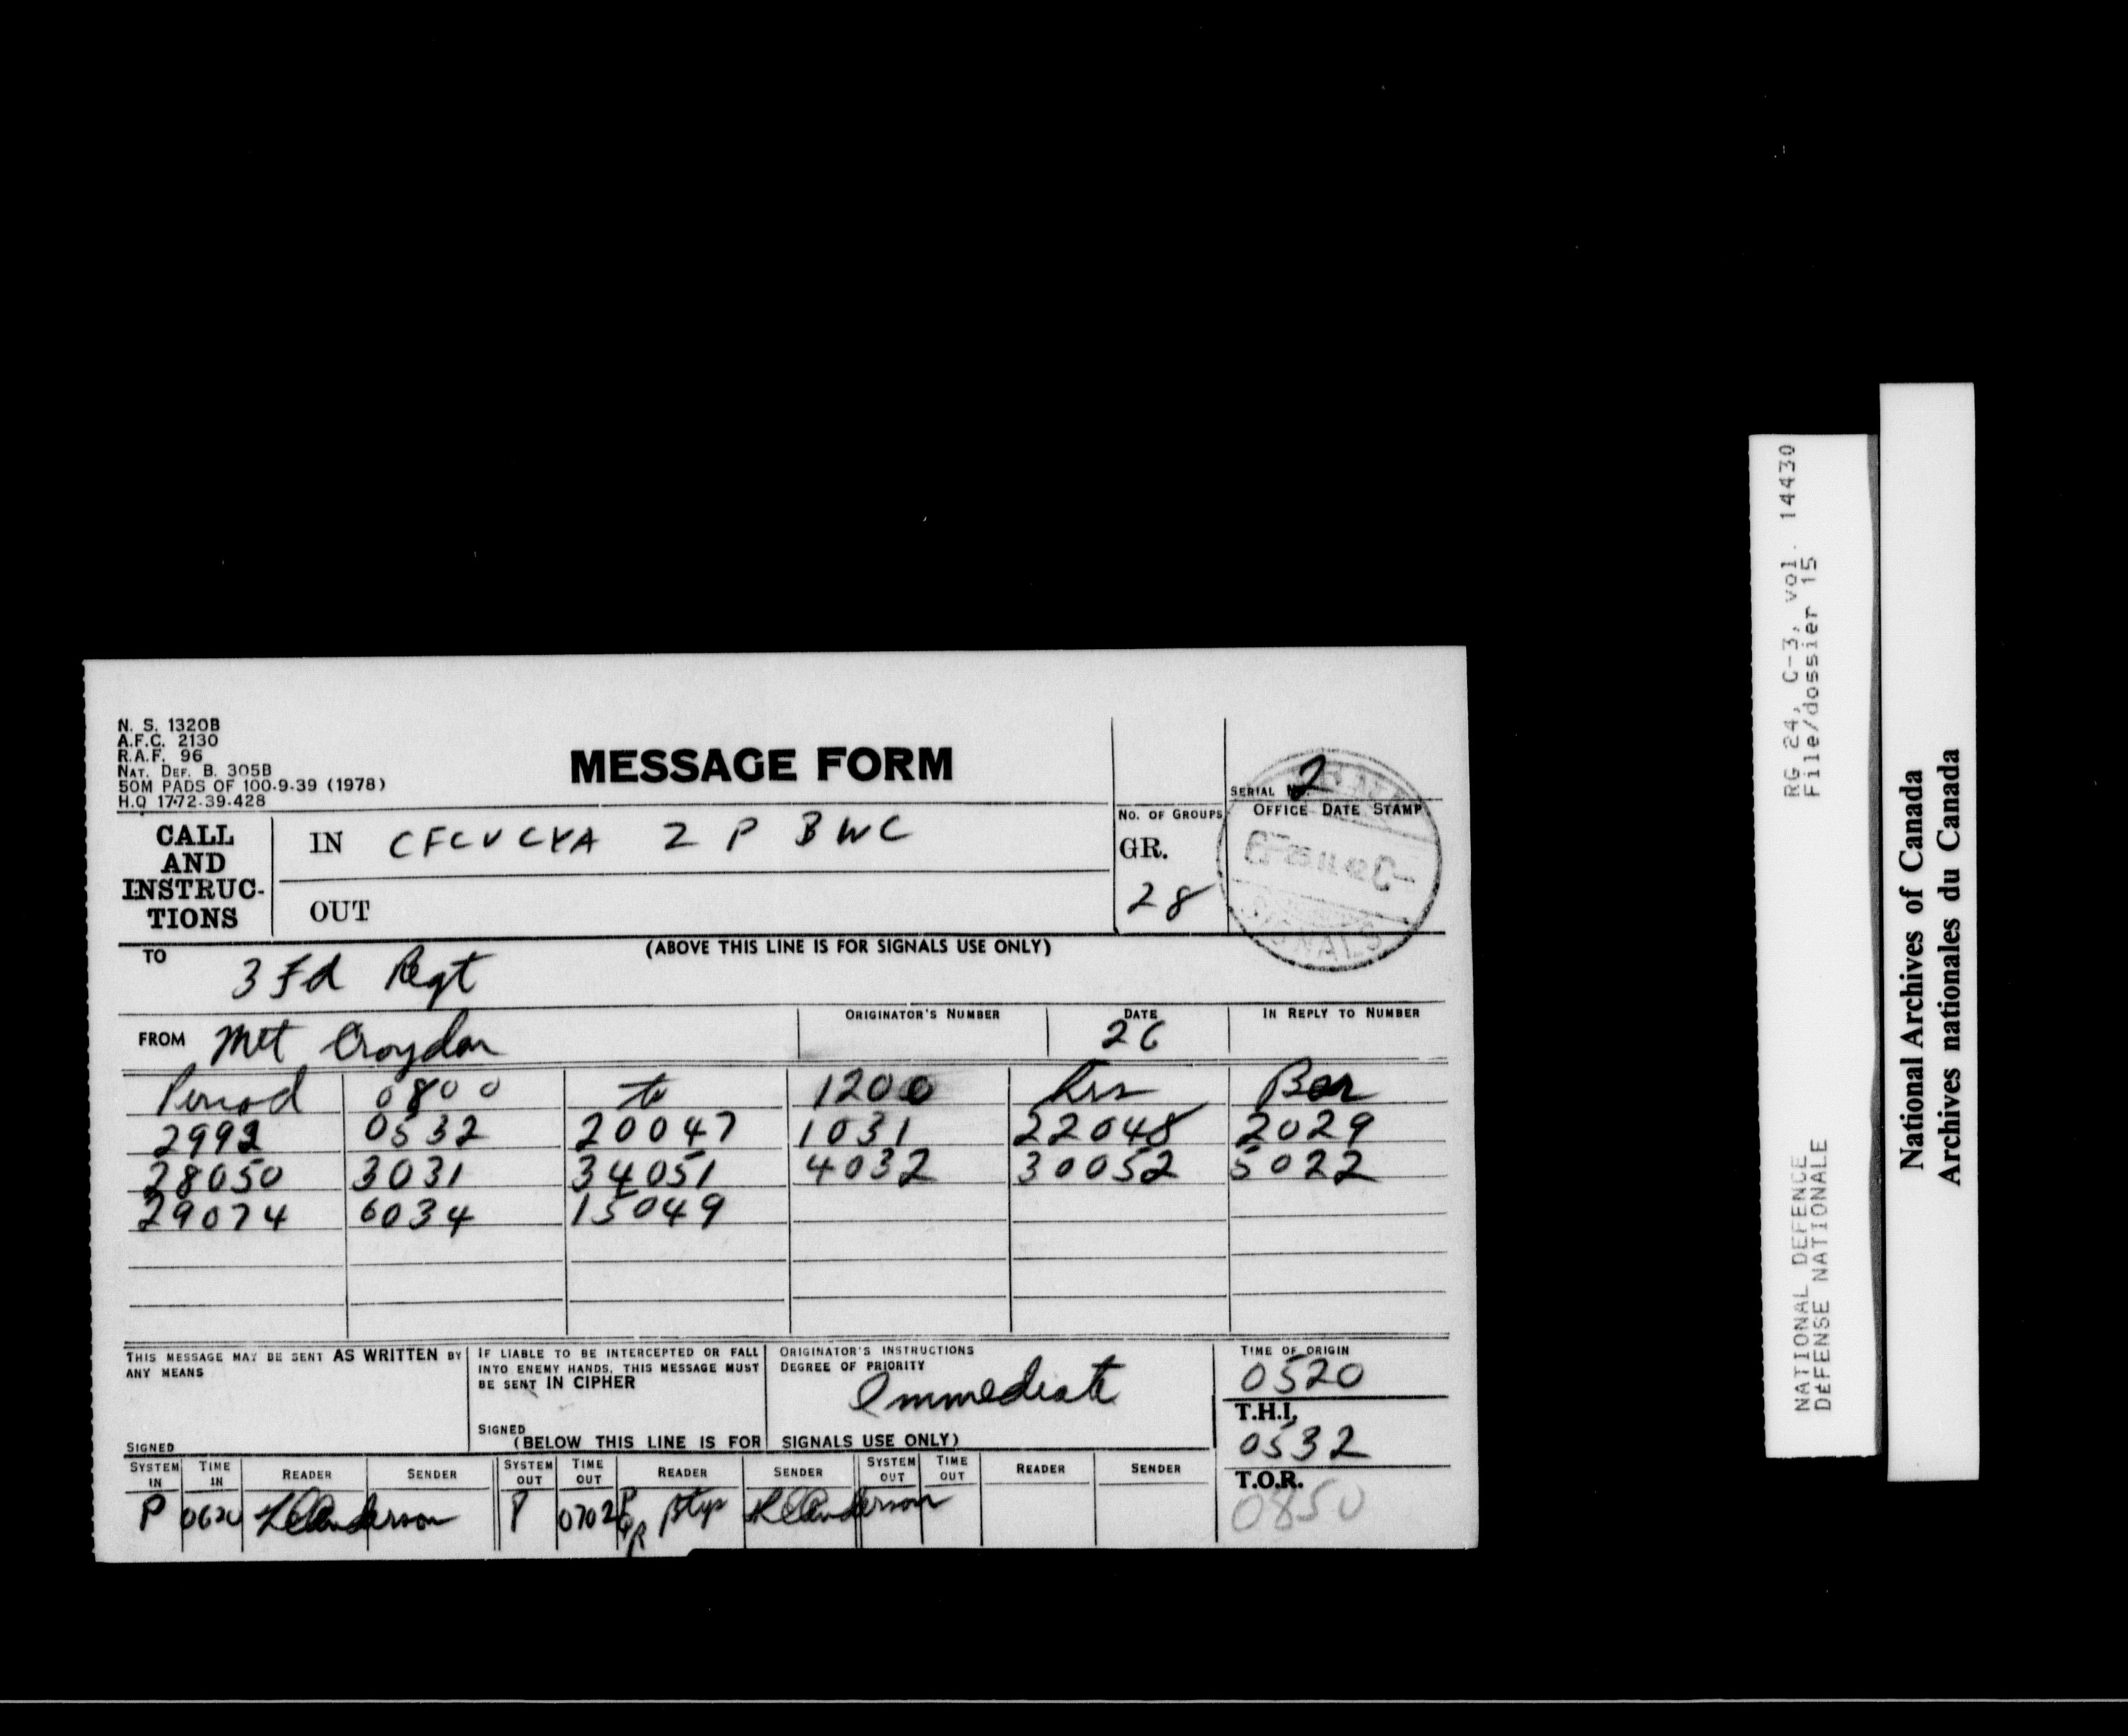 N. S. 1320B
A.F.C. 2130
R.A.F. 96
NAT. DEF. B. 305B
50M PADS OF 100-9-39 (1978)
H.Q 1772-39-428
MESSAGE FORM
SERIAL No. 2
CALL AND INSTRUC-TIONS
IN CFCVCYA 2 P BWC
OUT
NO. OF GROUPS
GR.
28
OFFICE DATE STAMP
25 11 42
SIGNALS
(ABOVE THIS LINE IS FOR SIGNALS USE ONLY)
TO 3 Fd Regt
FROM Met Croydon
ORIGINATOR'S NUMBER
DATE
26
IN REPLY TO NUMBER
Period 0800 to 1200 hrs Bar
2992 0532 20047 1031 22048 2029
28050 3031 34051 4032 30052 5022
29074 6034 15049
THIS MESSAGE MAY BE SENT AS WRITTEN BY ANY MEANS
SIGNED
IF LIABLE TO BE INTERCEPTED OR FALL INTO ENEMY HANDS, THIS MESSAGE MUST BE SENT IN CIPHER
SIGNED
ORIGINATOR'S INSTRUCTIONS
DEGREE OF PRIORITY
Immediate
TIME OF ORIGIN
0520
T.H.I.
0532
T.O.R.
0850
(BELOW THIS LINE IS FOR SIGNALS USE ONLY)
SYSTEM IN TIME IN READER SENDER SYSTEM OUT TIME OUT READER SENDER SYSTEM OUT TIME OUT READER SENDER
P 0620 Anderson P 0702 Anderson
RG 24, C-3, vol. 14430
File/dossier 15
NATIONAL DEFENCE
DÉFENSE NATIONALE
National Archives of Canada
Archives nationales du Canada